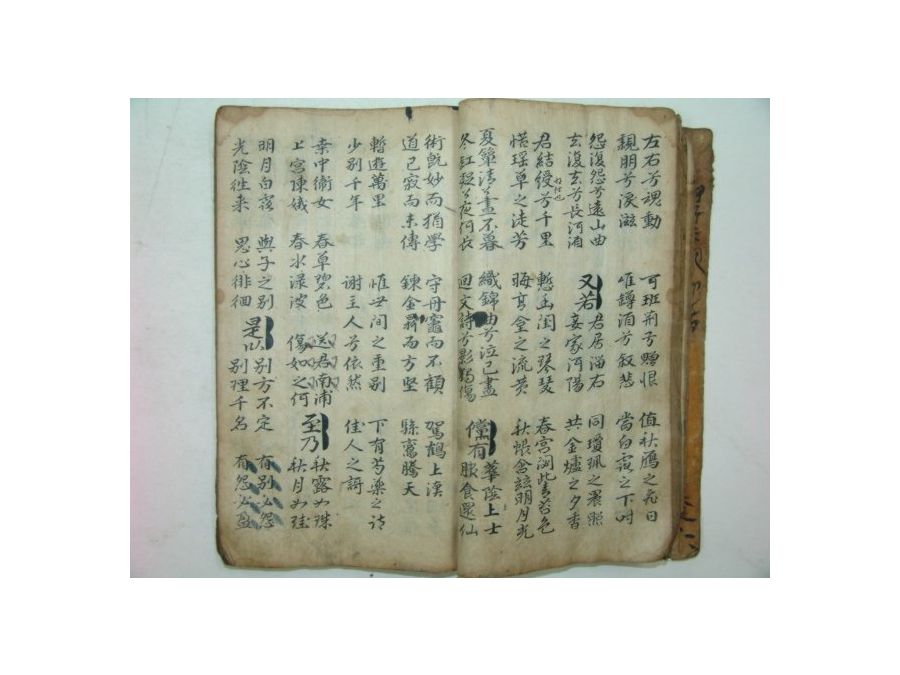 左右兮魂動
親朋兮淚滋
可班荊兮贈恨
唯罇酒兮敘悲
值秋鴈之飛日
當白露之下時
怨復怨兮遠山曲
去復去兮長河湄
又若
君居淄右
妾家河陽
同瓊珮之晨照
共金爐之夕香
君結綬兮千里
惜瑤草之徒芳
慙幽閨之琴瑟
晦高臺之流黃
春宮閟此青苔色
秋帳含玆明月光
夏簟清兮晝不暮
冬釭凝兮夜何長
織錦曲兮泣已盡
迴文詩兮影獨傷
儻有
華陰上士
服食還仙
術旣妙而猶學
道已寂而未傳
守丹竈而不顧
鍊金鼎而方堅
駕鶴上漢
驂鸞騰天
暫遊萬里
少別千年
惟世間之重別
謝主人兮依然
下有芍藥之詩
佳人之謌
桑中衛女
上宮陳娥
春草碧色
春水淥波
送君南浦
傷如之何
至乃
秋露如珠
秋月如珪
明月白露
光陰往來
與子之別
思心徘徊
是以
別方不定
別理千名
有別必怨
有怨必盈